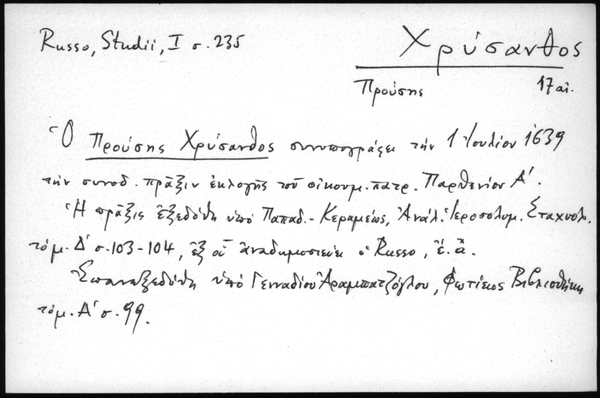 Russo, Studii, I σ. 235
Χρύσανθος
Προύσης 17 αἰ.
Ὁ Προύσης Χρύσανθος συνυπογράφει τὴν 1 Ἰουλίου 1639
τὴν συνοδ. πρᾶξιν ἐκλογῆς τοῦ οἰκουμ. πατρ. Παρθενίου Α΄.
Ἡ πρᾶξις ἐξεδόθη ὑπὸ Παπαδ.-Κεραμέως, Ἀνάλ. Ἱεροσολυμ. Σταχυολ.
τόμ. Δ΄ σ. 103-104, ἐξ οὗ ἀναδημοσιεύει ὁ Russo, ἔ.ἀ.
Ἐπανεξεδόθη ὑπὸ Γενναδίου Ἀραμπατζόγλου, Φωτίειος Βιβλιοθήκη
τόμ. Α΄ σ. 99.